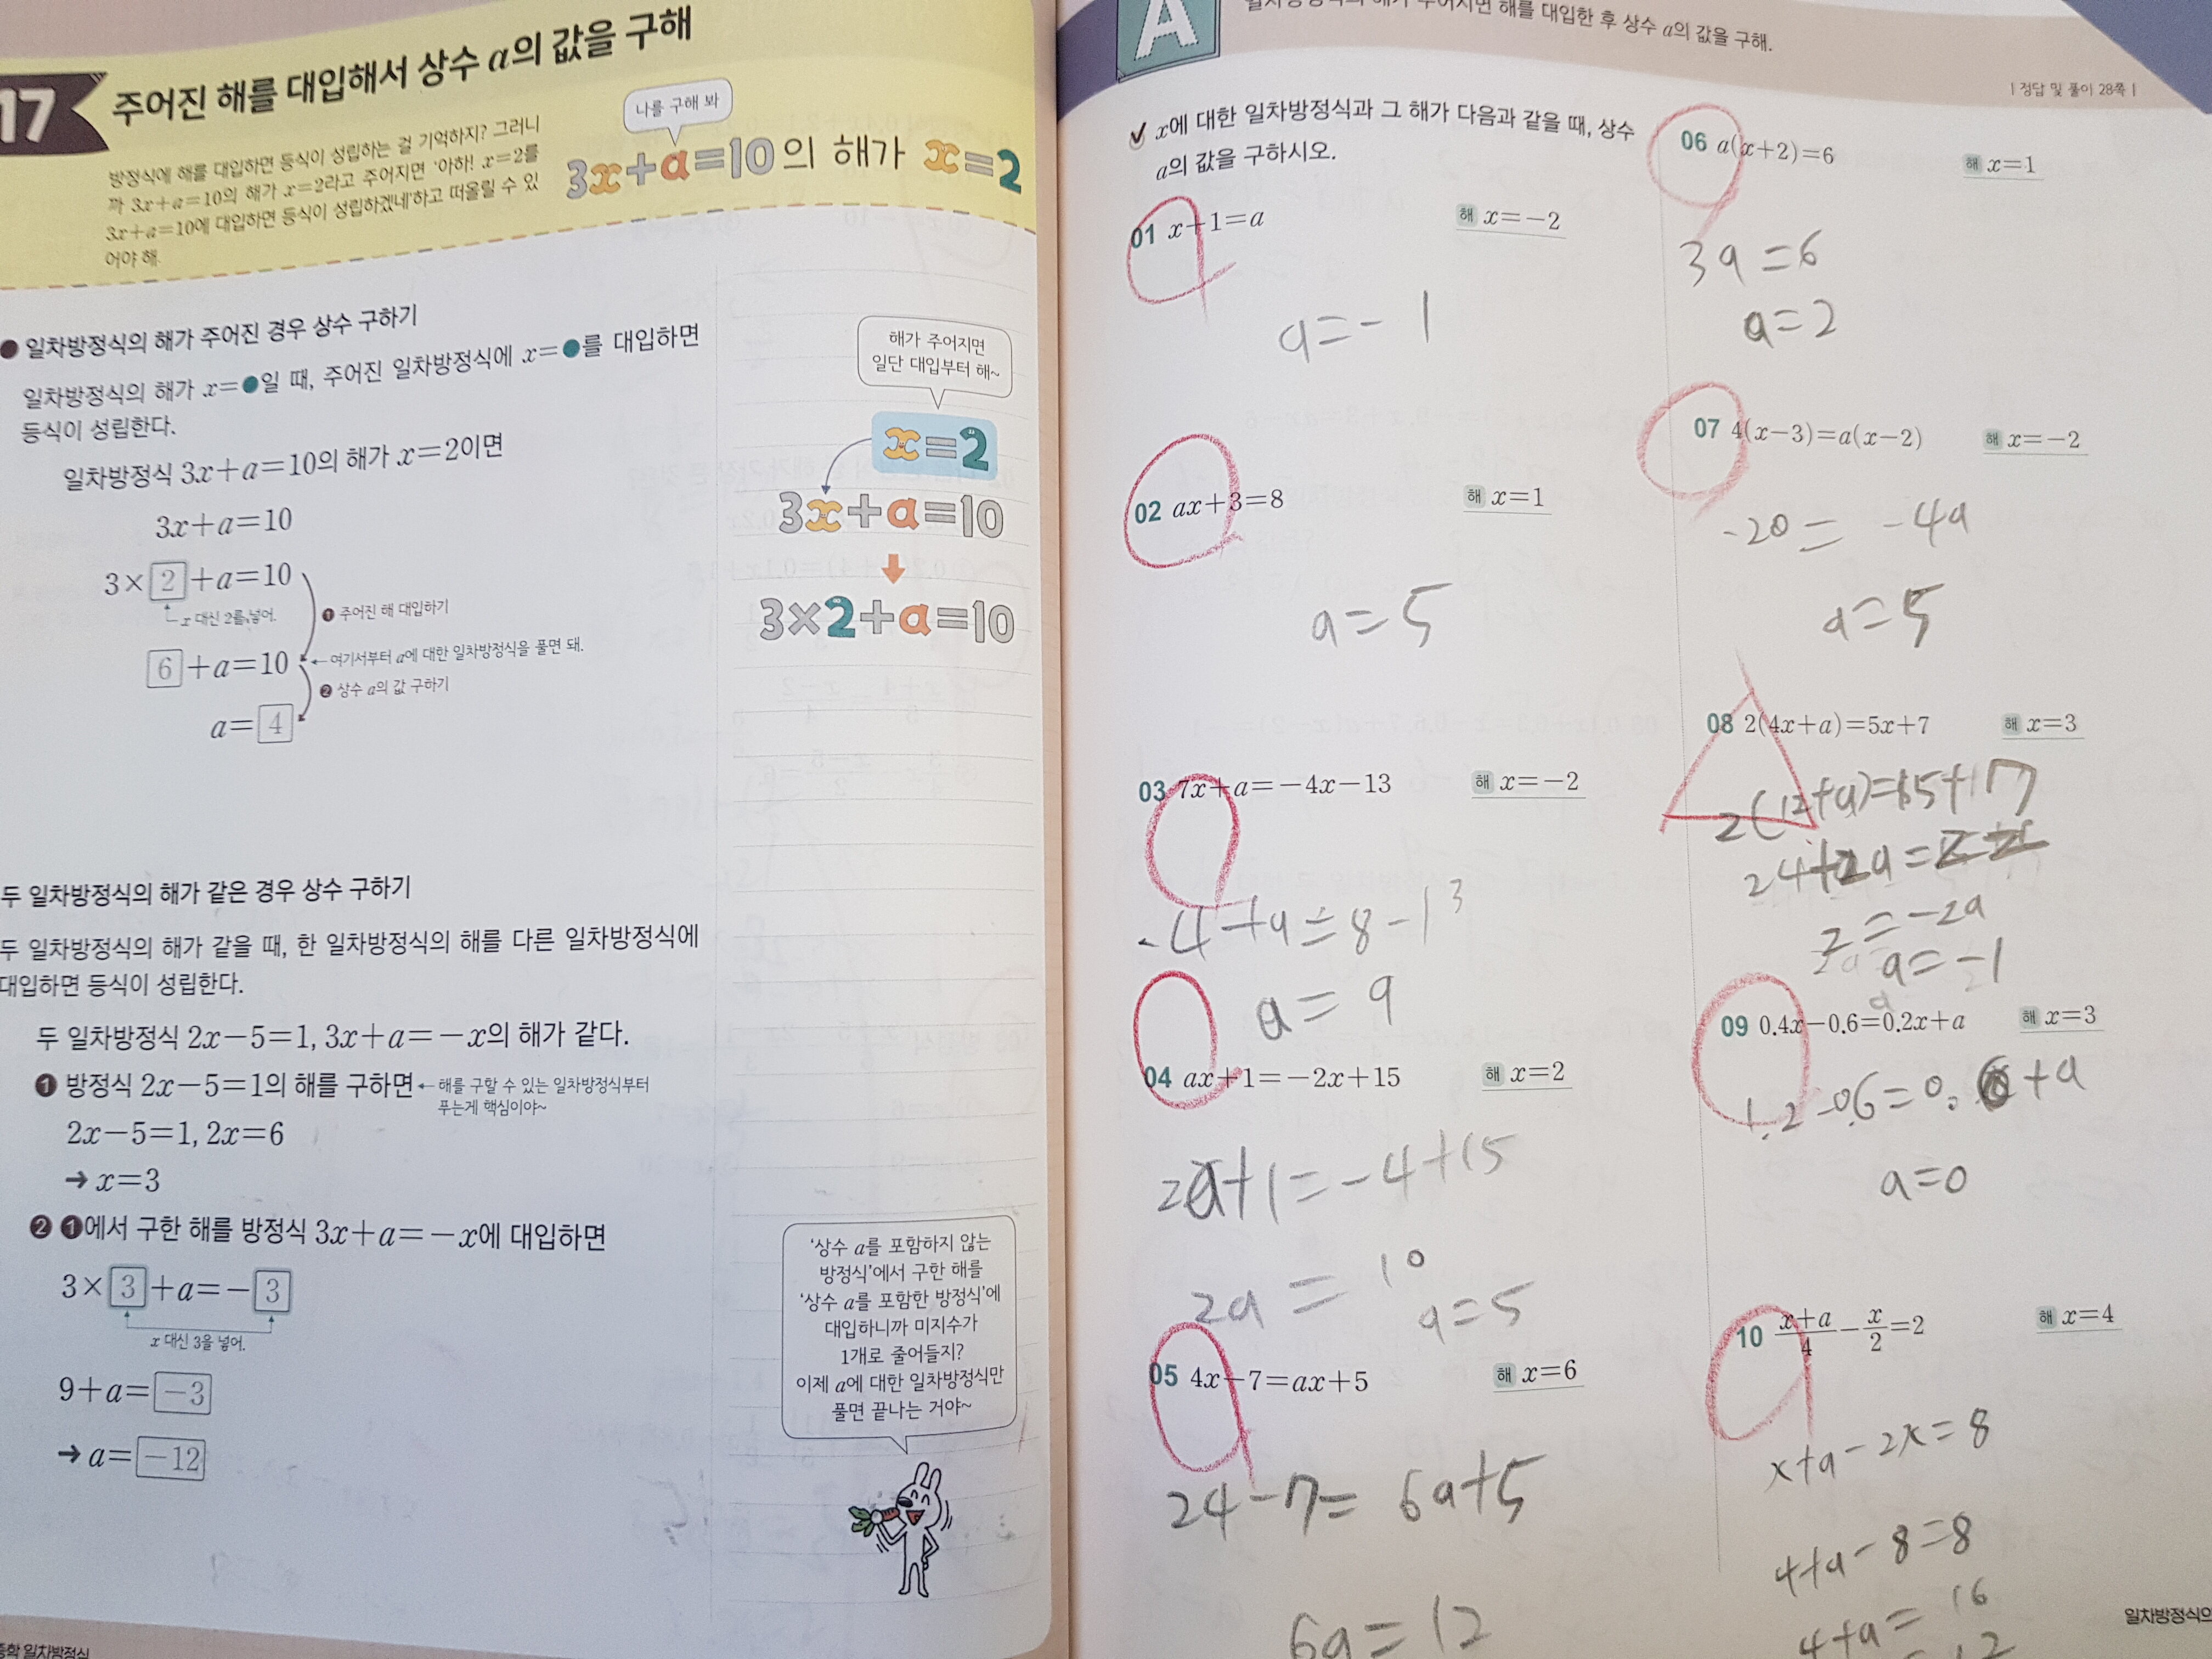 17
주어진 해를 대입해서 상수 a의 값을 구해
방정식에 해를 대입하면 등식이 성립하는 걸 기억하지? 그러니
까 3x+a=10의 해가 x=2라고 주어지면 '아하! x=2를
3x+a=10에 대입하면 등식이 성립하겠네'하고 떠올릴 수 있
어야 해.
나를 구해 봐
3x+a=10의 해가 x=2
● 일차방정식의 해가 주어진 경우 상수 구하기
일차방정식의 해가 x=●일 때, 주어진 일차방정식에 x=●를 대입하면
등식이 성립한다.
일차방정식 3x+a=10의 해가 x=2이면
3x+a=10
3×2+a=10
x 대신 2를 넣어.
❶ 주어진 해 대입하기
6+a=10 ←여기서부터 a에 대한 일차방정식을 풀면 돼.
❷ 상수 a의 값 구하기
a=4
해가 주어지면
일단 대입부터 해~
x=2
3x+a=10
3×2+a=10
두 일차방정식의 해가 같은 경우 상수 구하기
두 일차방정식의 해가 같을 때, 한 일차방정식의 해를 다른 일차방정식에
대입하면 등식이 성립한다.
두 일차방정식 2x-5=1, 3x+a=-x의 해가 같다.
❶ 방정식 2x-5=1의 해를 구하면 ←해를 구할 수 있는 일차방정식부터
푸는게 핵심이야~
2x-5=1, 2x=6
→ x=3
❷ ❶에서 구한 해를 방정식 3x+a=-x에 대입하면
3×3+a=-3
x 대신 3을 넣어.
9+a=-3
→ a=-12
'상수 a를 포함하지 않는
방정식'에서 구한 해를
'상수 a를 포함한 방정식'에
대입하니까 미지수가
1개로 줄어들지?
이제 a에 대한 일차방정식만
풀면 끝나는 거야~
일차방정식
A
주어지면 해를 대입한 후 상수 a의 값을 구해.
| 정답 및 풀이 28쪽 |
x에 대한 일차방정식과 그 해가 다음과 같을 때, 상수
a의 값을 구하시오.
01 x+1=a 해 x=-2
a=-1
02 ax+3=8 해 x=1
a=5
03 7x+a=-4x-13 해 x=-2
a=9
04 ax+1=-2x+15 해 x=2
2a+1=-4+15
2a=10
a=5
05 4x-7=ax+5 해 x=6
24-7=6a+5
6a=12
06 a(x+2)=6 해 x=1
3a=6
a=2
07 4(x-3)=a(x-2) 해 x=-2
-20=-4a
a=5
08 2(4x+a)=5x+7 해 x=3
2(12+a)=15+7
24+2a=
2=-2a
a=-1
09 0.4x-0.6=0.2x+a 해 x=3
1.2-0.6=0.6+a
a=0
10 (x+a)/4-x/2=2 해 x=4
x+a-2x=8
4+a-8=8
4+a=16
일차방정식의